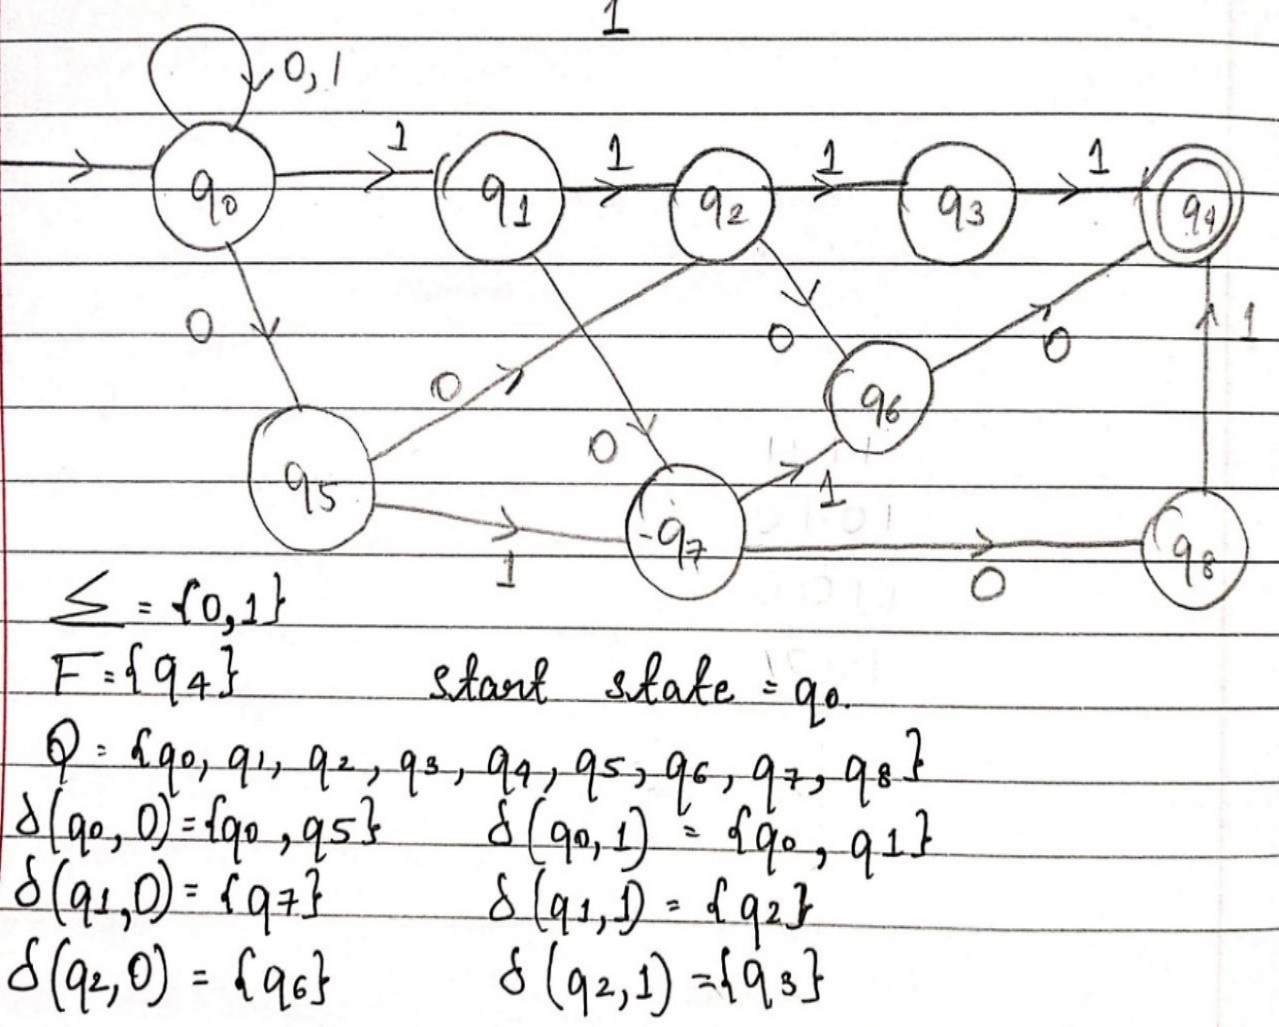 1
0,1
1 1 1 1
q0 q1 q2 q3 q4
0 0 0 0 1
0 q6
q5 1
q7 q8
1 0
Σ = {0,1}
F = {q4} start state = q0.
Q = {q0, q1, q2, q3, q4, q5, q6, q7, q8}
δ(q0,0) = {q0, q5} δ(q0,1) = {q0, q1}
δ(q1,0) = {q7} δ(q1,1) = {q2}
δ(q2,0) = {q6} δ(q2,1) = {q3}